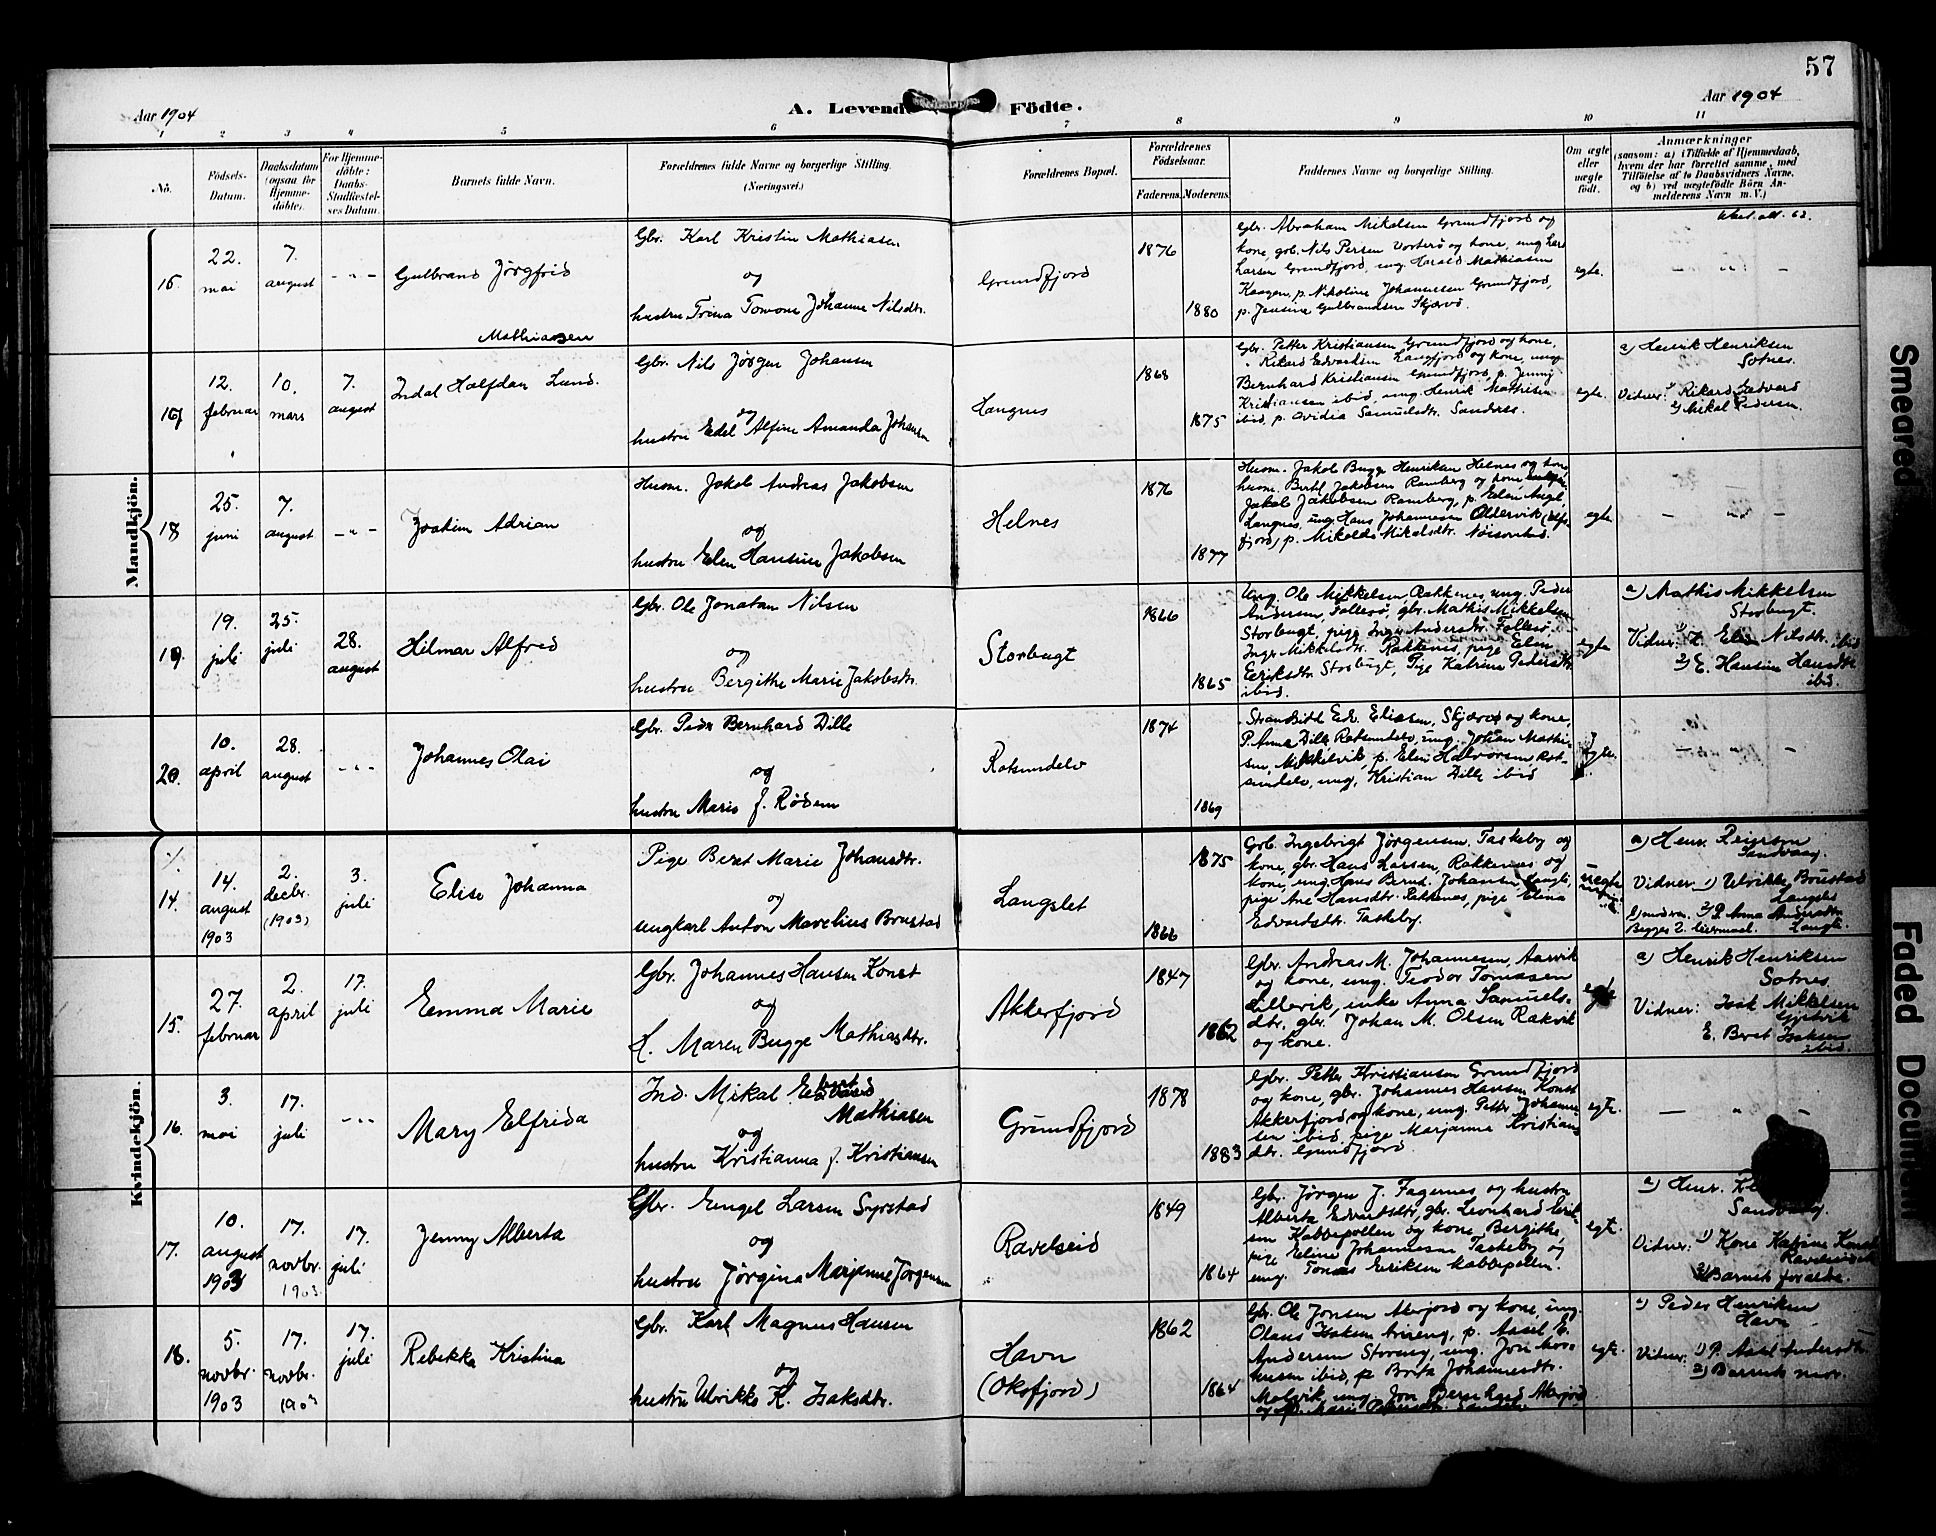 57
Aar 1904
A. Levende Födte.
Aar 1904
1 2 3 4 5 6 7 8 9 10 11
No.
Födsels-
Datum.
Daabsdatum
(ogsaa for
Hjemme-
døbte).
For Hjemme-
döbte:
Daabs-
Stadfæstel-
ses Datum.
Barnets fulde Navn.
Forældrenes fulde Navne og borgerlige Stilling.
(Næringsvei.)
Forældrenes Bopæl.
Forældrenes
Födselsaar.
Faderens.
Moderens.
Faddernes Navne og borgerlige Stilling.
Om ægte
eller
uægte
født.
Anmærkninger
(saasom: a) i Tilfælde af Hjemmedaab,
hvem der har forrettet samme, med
Tilföielse af to Daabsvidners Navne,
og b) ved uægtefödte Börn An-
melderens Navn m. V.)
Mandkjön.
16.
22.
mai
7.
august
- " -
Gulbrand Jørgfrid
Mathiassen
Gbr. Karl Kristin Mathiasen
og
hustru Trina Tomone Johanne Nilsdtr.
Grundfjord
1876
1880
Gbr. Abraham Mikalsen Grundfjord og
kone, gbr. Nils Persen Vorterö og kone, ung Lars
Larsen Grundfjord, ung. Harald Mathiasen
Kaagen, p. Nikoline Johannesen Grundfjord,
p. Jensine Gulbrandsen Skjærvö.
egte.
- " -
17
12.
februar
10.
mars
7.
august
Indal Halfdan Lund.
Gbr. Nils Jørgen Johansen
og
hustru Edel Alfine Amanda Johansen
Langnes
1868
1875
Gbr. Petter Kristiansen Grundfjord og kone,
" Rikard Edvardsen Langfjord og kone, ung.
Bernhard Kristiansen Grundfjord, p. Jenny
Kristiansen ibid, ung. Henrik Mathisen
ibid, p. Ovidia Samuelsdtr. Sandnes.
egte.
a) Henrik Henriksen
Sotnes.
Vidner: 1) Rikard Edvard
2) Mikal Pedersen.
18
25.
juni
7.
august
- " -
Joakim Adrian
Husm. Jakob Andreas Jakobsen
og
hustru Elen Hansine Jakobsen
Helnes
1876
1877
Husm. Jakob Bugge Henriksen Helnes og kone,
husm. Bertel Jakobsen Ramberg og kone,
Jakob Jakobsen Ramberg, p. Elen
Langnes, ung. Hans Johannesen Oldervik (
fjord) p. Mikalda Mikalsdtr.
egte
- " -
19.
19.
juli
25.
juli
28.
august
Hilmar Alfred
Gbr. Ole Jonatan Nilsen
og
hustru Bergithe Marie Jakobsdtr.
Storbugt
1866
1865
Ung. Ole Mikkelsen Rakkenes, ung. Peder
Andersen Follesö, gbr. Mathis Mikkelsen
Storbugt, pige Inger Andersdtr. Follesö,
Inger Mikkelsdtr. Rakkenes, pige Elen
Eeriksdtr Storbugt, Pige Katrina Pedersdtr
ibid.
egte
a) Mathis Mikkelsen
Storbugt.
Vidner: 1) Elen Nilsdtr. ibid
2) E. Hansine Hansdtr
ibid.
20.
10.
april
28.
august
- " -
Johannes Olai
Gbr. Peder Bernhard Dille
og
hustru Marie f. Rödsen
Rotsundelv
1874
1869
Strandsidd Edv. Eliasen, Skjærvö og kone,
P. Anna Dille Rotsundelv, ung. Johan Mathi-
sen, Mikkelvik, p. Elen Halvorsen Rot-
sundelv, ung. Kristian Dille ibid
Egte.
- " -
Kvindekjön.
14.
14.
august
1903
2.
decbr.
(1903)
3.
juli
Elise Johanna
Pige Beret Marie Johansdtr.
og
ungkarl Anton Marelius Brustad
Langslet
1875
1866
Gbr. Ingebrigt Jørgensen, Taskeby og
kone, gbr. Hans Larsen, Rakkenes og
kone, ung. Hans Bernt. Johansen
pige Ane Hansdtr. Rakkenes, pige Elina
Edvardsdtr. Taskeby.
uegte
a) Henr.
Sandvaag.
Vidner: 1) Ulrikke Brustad
Langslet
2) P. Anna Andersdtr.
Begges 2. leiermaal.
15.
27.
februar
2.
april
17.
juli
Eemma Marie
Gbr. Johannes Hansen Konst
og
h. Maren Bugge Mathiasdtr.
Akkerfjord
1847
1862
Gbr. Andreas M. Johannesen, Aarvik
og kone, ung. Teodor Tomasen
Lillevik, enke Anna Samuels-
dtr, gbr. Johan M. Olsen Rakvik
og kone.
egte
a) Henrik Henriksen
Sotnes.
Vidner: Isak Mikkelsen
E. Beret Isaksen
ibid.
16.
3.
mai
17.
juli
- " -
Mary Elfrida
Ind. Mikal Edvard
Mathiasen
og
hustru Kristianna f. Kristiansen
Grundfjord
1878
1883
Gbr. Petter Kristiansen Grundfjord
og kone, gbr. Johannes Hansen Konst
Akkerfjord og kone, ung. Petter Johanne-
sen ibid, pige Marjanna Kristians-
dtr. Grundfjord.
egte.
- " -
17.
10.
august
1903
17.
novbr.
1903.
17.
juli
Jenny Alberta
Gbr. Eengel Larsen Syrstad
og
hustru Jørgina Marjanne Jørgensen
Ravelseid
1849
1864
Gbr. Jørgen J. Fagernes og hustru
Alberta Edvardsdtr, gbr. Leonhard Erik-
sen Kobbepollen og kone Bergithe,
pige Eline Johannesen Taskeby og
ung. Tomas Eriksen Kobbepollen.
egte.
a) Henr.
Sandvaag.
Vidner: 1) Kone Katrine Konst
Ravelseidet
2) Barnets forældre.
18.
5.
novbr.
1903
17.
novbr.
1903
17.
juli
Rebekka Kristina
Gbr. Karl Magnus Hansen
og
hustru Ulrikke K. Isaksdtr.
Havn
(Oksfjord)
1862
1864
Gbr. Ole Jonsen Akerjord og kone, ung.
Olaus Isaksen p. Aasel E.
Andersen Storeng, ung. Jon
husen ibid, p. Berta Johannesdtr.
Malvik, ung. Jon Bernhard Akerjord
egte.
a) Peder Henriksen
Havn
Vidner: 1) P. Aasel Andersdtr.
2) Barnets mor.
Smeared
Faded Document